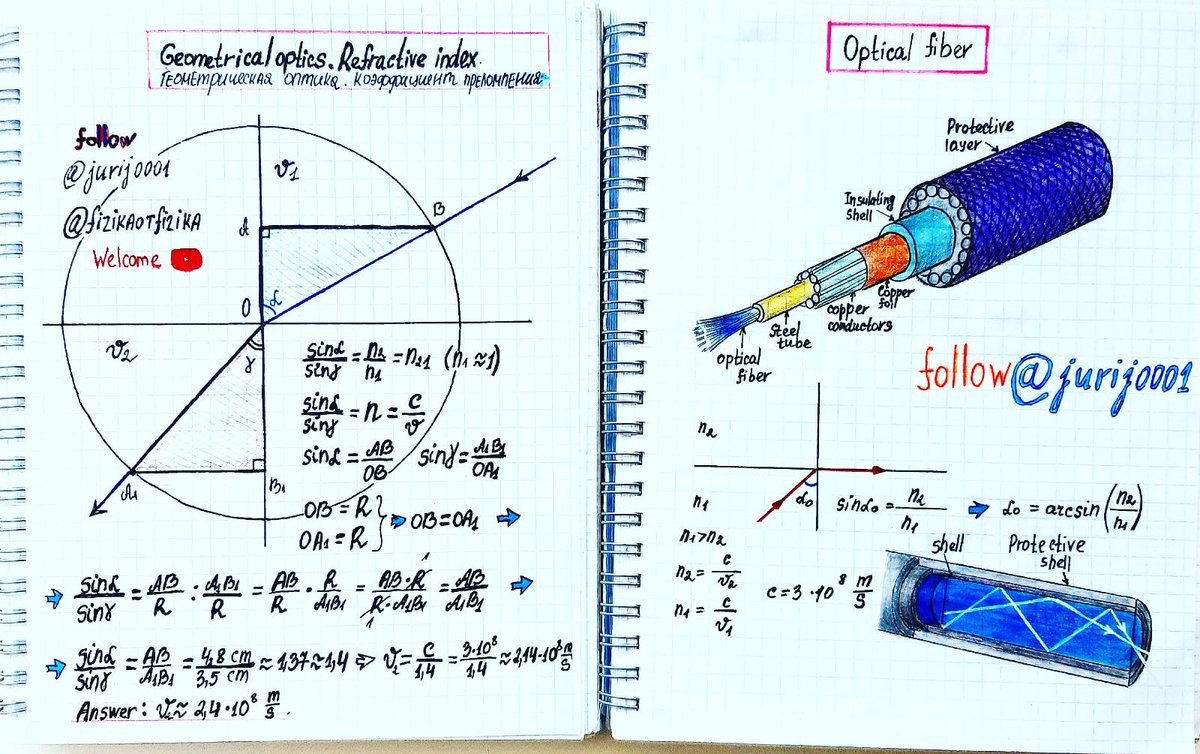 Geometrical optics. Refractive index.
Геометрическая оптика. Коэффициент преломления
follow
@jurij0001
@fizikaotfizika
Welcome
𝜗1
A
B
O
α
𝜗2
γ
A1
B1
sinα/sinγ = n2/n1 = n21 (n1 ≈ 1)
sinα/sinγ = n = c/𝜗
sinα = AB/OB sinγ = A1B1/OA1
OB = R
OA1 = R } ⇒ OB = OA1 ⇒
⇒ sinα/sinγ = AB/R : A1B1/R = AB/R · R/A1B1 = AB·R/R·A1B1 = AB/A1B1 ⇒
⇒ sinα/sinγ = AB/A1B1 = 4,8 cm/3,5 cm ≈ 1,37 ≈ 1,4 ⇒ 𝜗2 = c/1,4 = 3·10⁸/1,4 ≈ 2,14·10⁸ m/s
Answer: 𝜗2 ≈ 2,4·10⁸ m/s.
Optical fiber
Protective
layer
Insulating
shell
Copper
foil
copper
conductors
Steel
tube
optical
fiber
follow @jurij0001
n2
n1
α0
sinα0 = n2/n1 ⇒ α0 = arcsin(n2/n1)
n1>n2
n2 = c/𝜗2
n1 = c/𝜗1
c = 3·10⁸ m/s
shell
Protective
shell